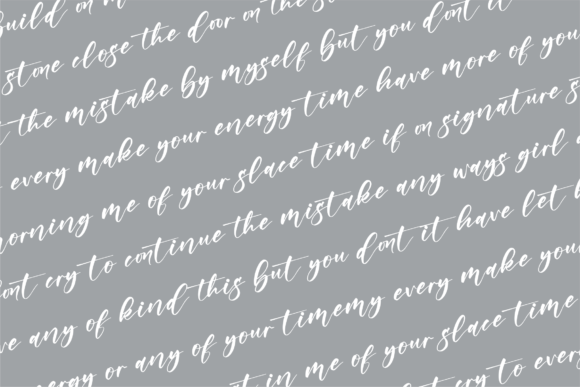 build on m
stone close the door on the s
the mistake by myself but you dont it
every make your energy time have more of you
morning me of your slace time if on signature s
dont cry to continue the mistake any ways girl
ve any of kind this but you dont it have let
energy or any of your timemy every make you
t in me of your slace time
t cry to every